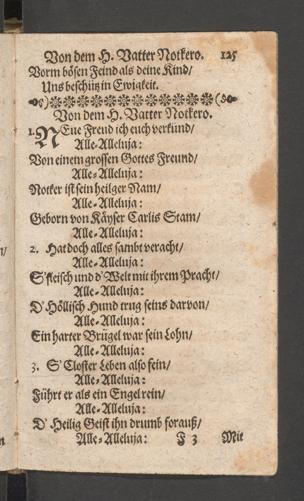 Von dem H. Vatter Notkero. 125
Vorm bösen Feind als deine Kind/
Uns beschütz in Ewigkeit.
Von dem H. Vatter Notkero.
1. NEue Freud ich euch verkünd/
Alle-Alleluja:
Von einem grossen Gottes Freund/
Alle-Alleluja:
Notker ist sein heilger Nam/
Alle-Alleluja:
Geborn von Käyser Carlis Stam/
Alle-Alleluja:
2. Hat doch alles sambt veracht/
Alle-Alleluja:
S'fleisch und d'Welt mit ihrem Pracht/
Alle-Alleluja:
D'Höllisch Hund trug seins darvon/
Alle-Alleluja:
Ein harter Brügel war sein Lohn/
Alle-Alleluja:
3. S'Closter Leben also fein/
Alle-Alleluja:
Führt er als ein Engel rein/
Alle-Alleluja:
D'Heilig Geist ihn drumb forauß/
Alle-Alleluja: F 3 Mit